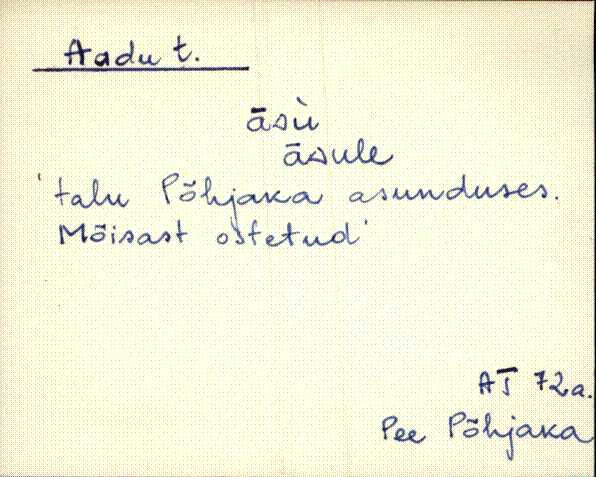 Aadu t.
āsù
āsule
'talu Põhjaka asunduses.
Mõisast ostetud'
AJ 72a.
Pee Põhjaka